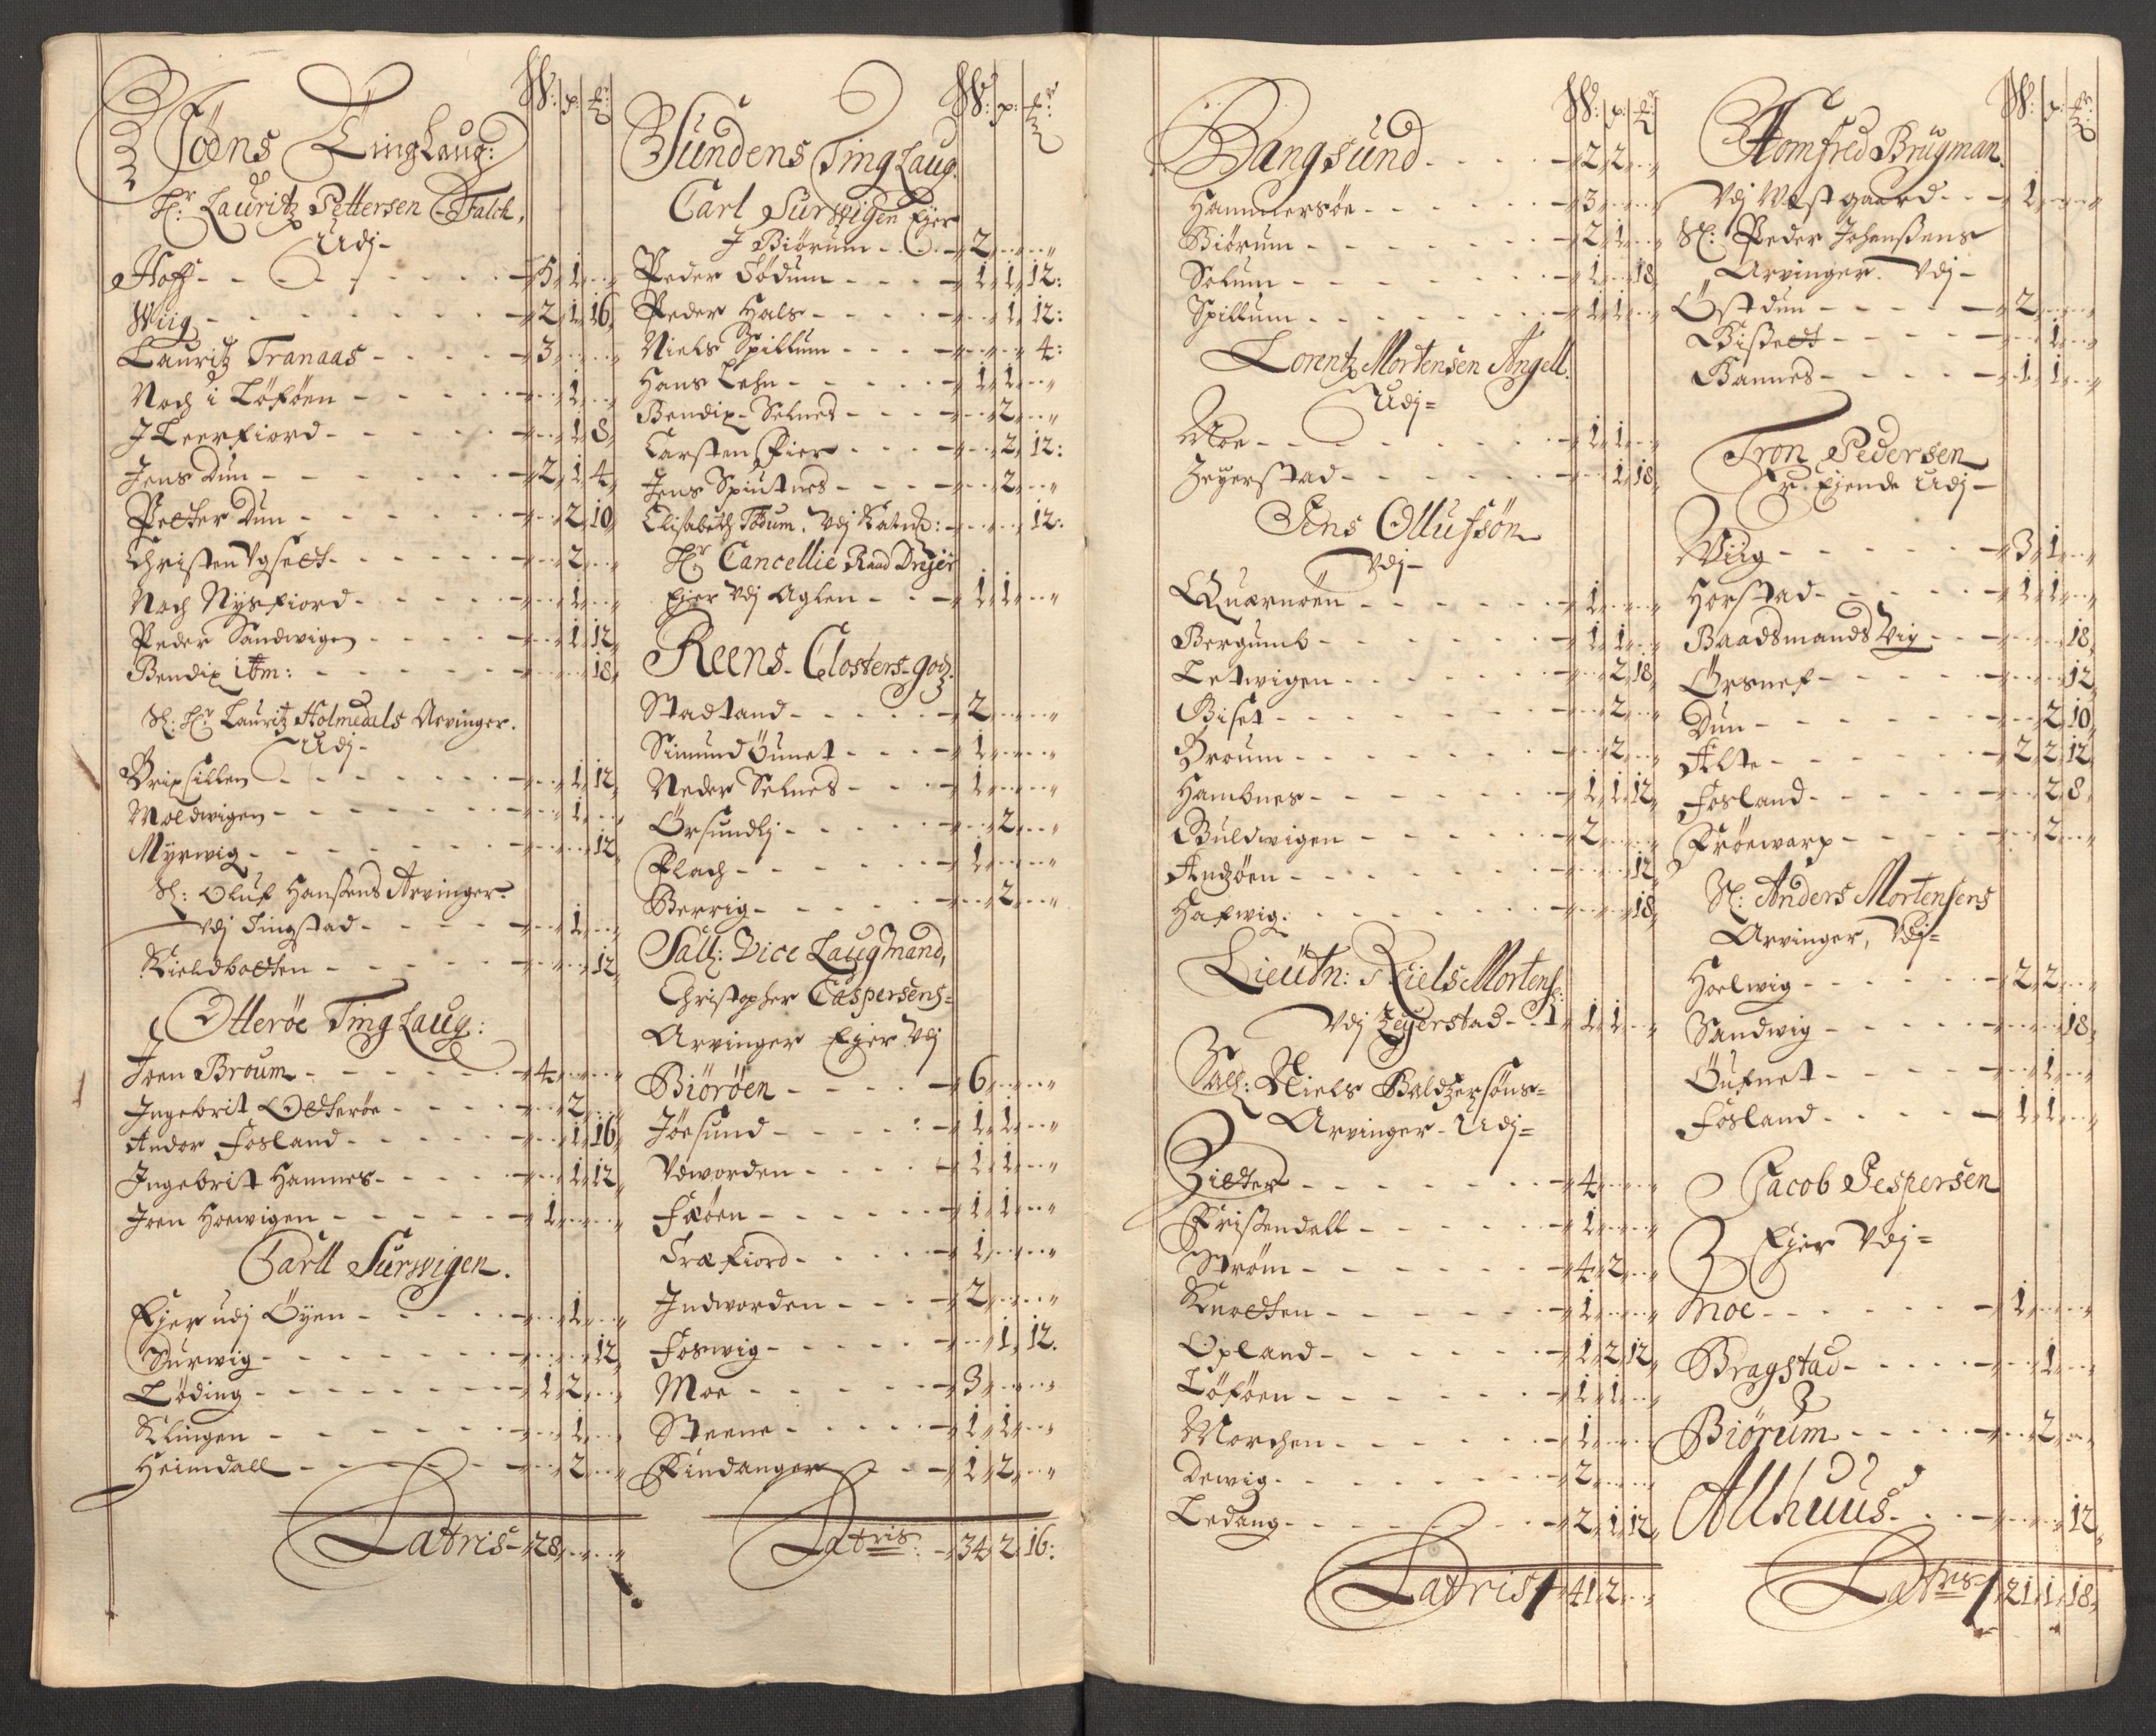 W: p: ℔r
Föens Ting Laug:
Hr: Lauritz Pettersen Falch,
Udj-
Hoff - - - 5, 1, ...
Wiig - - - 2, 1, 16,
Lauritz Tranaas - - - 3, ...
Noch i Löföen - - - 1, ...
J Leerfiord - - - 1, 8,
Jens Dun - - - 2, 1, 4,
Petter Dun - - - 2, 10,
Christen Ugselt - - - 2, ...
Noch Nysfiord - - - 1, ...
Peder Sandwigen - - - 1, 12,
Bendix itm: - - - 18,
Sl: Hr Lauritz Holmedals Arvinger.
Udj-
Brixsillen - - - 1, 12,
Moldwigen - - - 1, ...
Myrwig - - - 12,
Sl: Oluf Hansens Arvinger
Vdj Tingstad - - - 1, ...
Kieldbotten - - - 12,
Otteröe Ting Laug:
Joen Broum - - - 4, ...
Ingebrit Otterøe - - - 2, ...
Andor Fosland - - - 1, 16,
Ingebrit Hamnes - - - 1, 12,
Joen Hoewigen - - - 1, ...
Carll Surwigen.
Ejer udj Öyen - - - 1, ...
Surwig - - - 12,
Löding - - - 1, 2, ...
Klingen - - - 1, ...
Heimdall - - - 2, ...
Latris - 28, ...
W: p: ℔r
Sundens Ting Laug.
Carl Surwigen Ejer
J Biörum - - - 2, ...
Peder Födum - - - 1, 1, 12:
Peder Hals - - - 1, 12:
Niels Spillum - - - 4:
Hans Lehn - - - 1, 1, ...
Bendix Selnes - - - 2, ...
Carsten Fier - - - 2, 12:
Jens Spiutnes - - - 2, ...
Elisabeth Födum. Vdj Katnd: - - - 12:
Hr Cancellie Raad Dreyer
Ejer Vdj Aglen - - - 1, 1, ...
Reens Closters godz.
Stadtand - - - 2, ...
Simund Öunet - - - 1, ...
Neder Selnes - - - 1, ...
Örsundlj - - - 2, ...
Flach - - - 1, ...
Berrig - - - 2, ...
Sall: Vice Laugmand,
Christopher Caspersens=
Arvinger Ejer Vdj
Biöröen - - - 6, ...
Jöesund - - - 1, 1, ...
Vdworden - - - 1, 1, ...
Fæöen - - - 1, 1, ...
Træfiord - - - 1, ...
Indworden - - - 2, ...
Foswig - - - 1, 12.
Moe - - - 3, ...
Steene - - - 1, 1, ...
Findanger - - - 1, 2, ...
Latris - 34, 2, 16:
W: p: ℔r
Bangsund - - - 2, 2, ...
Hammersöe - - - 3, ...
Biörum - - - 2, 1, ...
Solum - - - 1, ... 18,
Spillum - - - 1, 1, ...
Lorentz Mortensen Angell.
Udj=
Moe - - - 1, 1, ...
Zeyerstad - - - 1, 18,
Jens Ollufsön
Vdj-
Quærnöen - - - 1, ...
Bergumb - - - 1, 1, ...
Letwigen - - - 2, 18,
Biset - - - 2, ...
Broum - - - 2, ...
Hambnes - - - 1, 1, 12,
Buldwigen - - - 2, ...
Andzöen - - - 12,
Hafwig - - - 18,
Lieutn: Niels Mortens:
Vdj Zeyerstad - - 1, 1, ...
Sall: Niels Baldzersöns=
Arvinger Udj=
Zielter - - - 4, ...
Frissendall - - - 1, ...
Ström - - - 4, 2, ...
Knotten - - - 1, ...
Opland - - - 1, 2, 12,
Löföen - - - 1, 1, ...
Morchen - - - 1, ...
Dewig - - - 2, ...
Ledang - - - 2, 1, 12,
Latris 41, 2, ...
W: p: ℔r
Homfred Brugman.
Vdj Westgaard - - - 1, ...
Sl: Peder Johansens
Arvinger. Vdj-
Östdun - - - 2, ...
Bisselt - - - 1, ...
Bannes - - - 1, 1, ...
Tron Pedersen
Er Ejende Udj-
Wiig - - - 3, 1, ...
Horstad - - - 1, 1, ...
Baadsmands Vig - - - 18,
Örsnes - - - 12,
Dun - - - 2, 10,
Alte - - - 2, 2, 12,
Fosland - - - 2, 8,
Fröewarp - - - 2, ...
Sl: Anders Mortensens
Arvinger, Vdj=
Hoelwig - - - 2, 2, ...
Sandwig - - - 18,
Öufnet - - - 1, ...
Fosland - - - 1, 1, ...
Jacob Jespersen
Ejer Vdj=
Moe - - - 1, ...
Bragstad - - - 1, ...
Biörum - - - 2, ...
Allhuus - - - 12,
Latris 21, 1, 18,